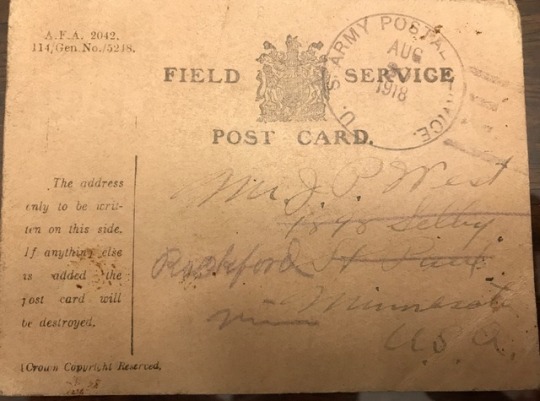 A.F.A. 2042.
114/Gen. No./5248.
FIELD SERVICE
POST CARD.
U.S. ARMY POSTAL SERVICE.
AUG
1918
The address
only to be writ-
ten on this side.
If anything else
is added the
post card will
be destroyed.
Mr. J. P. West
1898 Selby
Rockford St Paul
Minnesota
U.S.A.
[Crown Copyright Reserved.